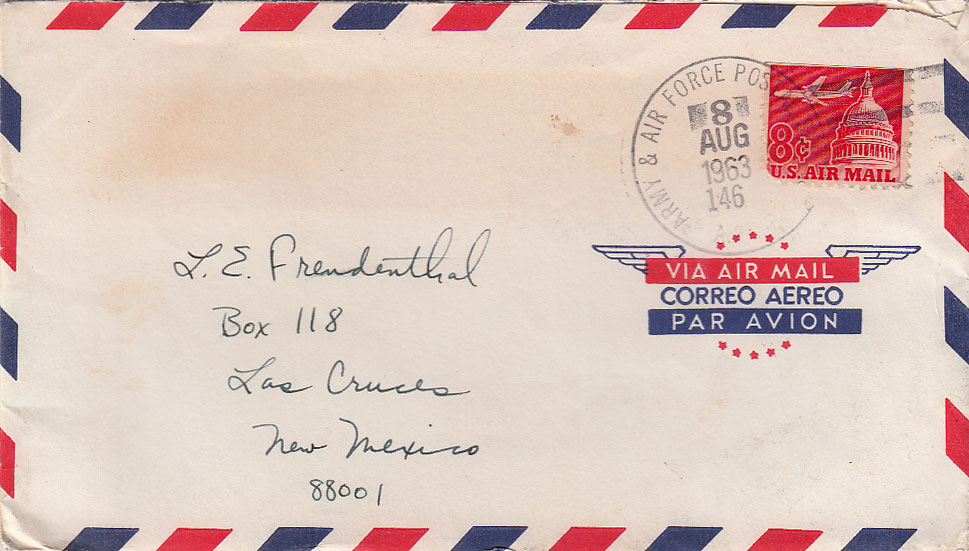 ARMY & AIR FORCE POS
8
AUG
1963
146
A.
8¢
U.S. AIR MAIL
VIA AIR MAIL
CORREO AEREO
PAR AVION
L. E. Freudenthal
Box 118
Las Cruces
New Mexico
88001